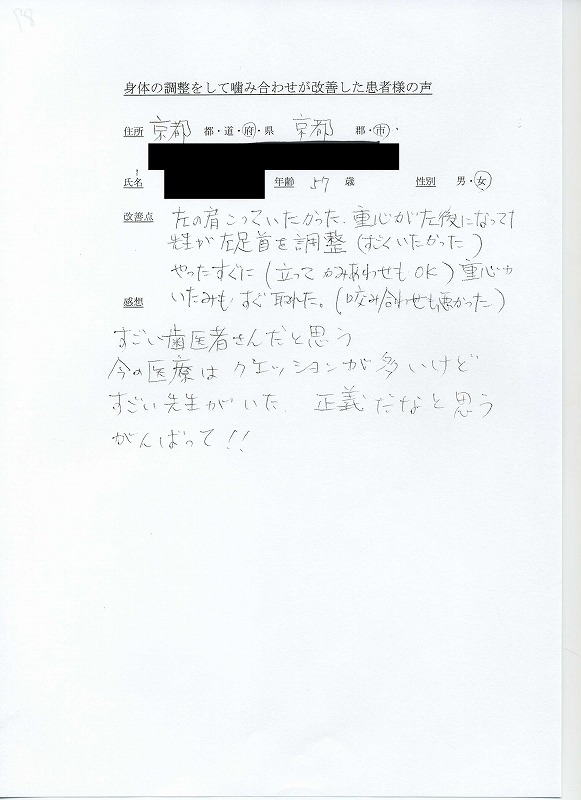 身体の調整をして噛み合わせが改善した患者様の声
住所 京都 都・道・府・県 京都 郡・市・
氏名 年齢 57 歳 性別 男・女
改善点 左の肩こっていたかった、重心が左後になってて
先生が左足首を調整 (すごくいたかった)
やったすぐに (立って かみあわせも OK) 重心や
いたみも すぐ取れた。(咬み合わせも悪かった)
感想
すごい歯医者さんだと思う
今の医療は クエッションが多いけど
すごい先生がいた. 正義だなと思う
がんばって!!